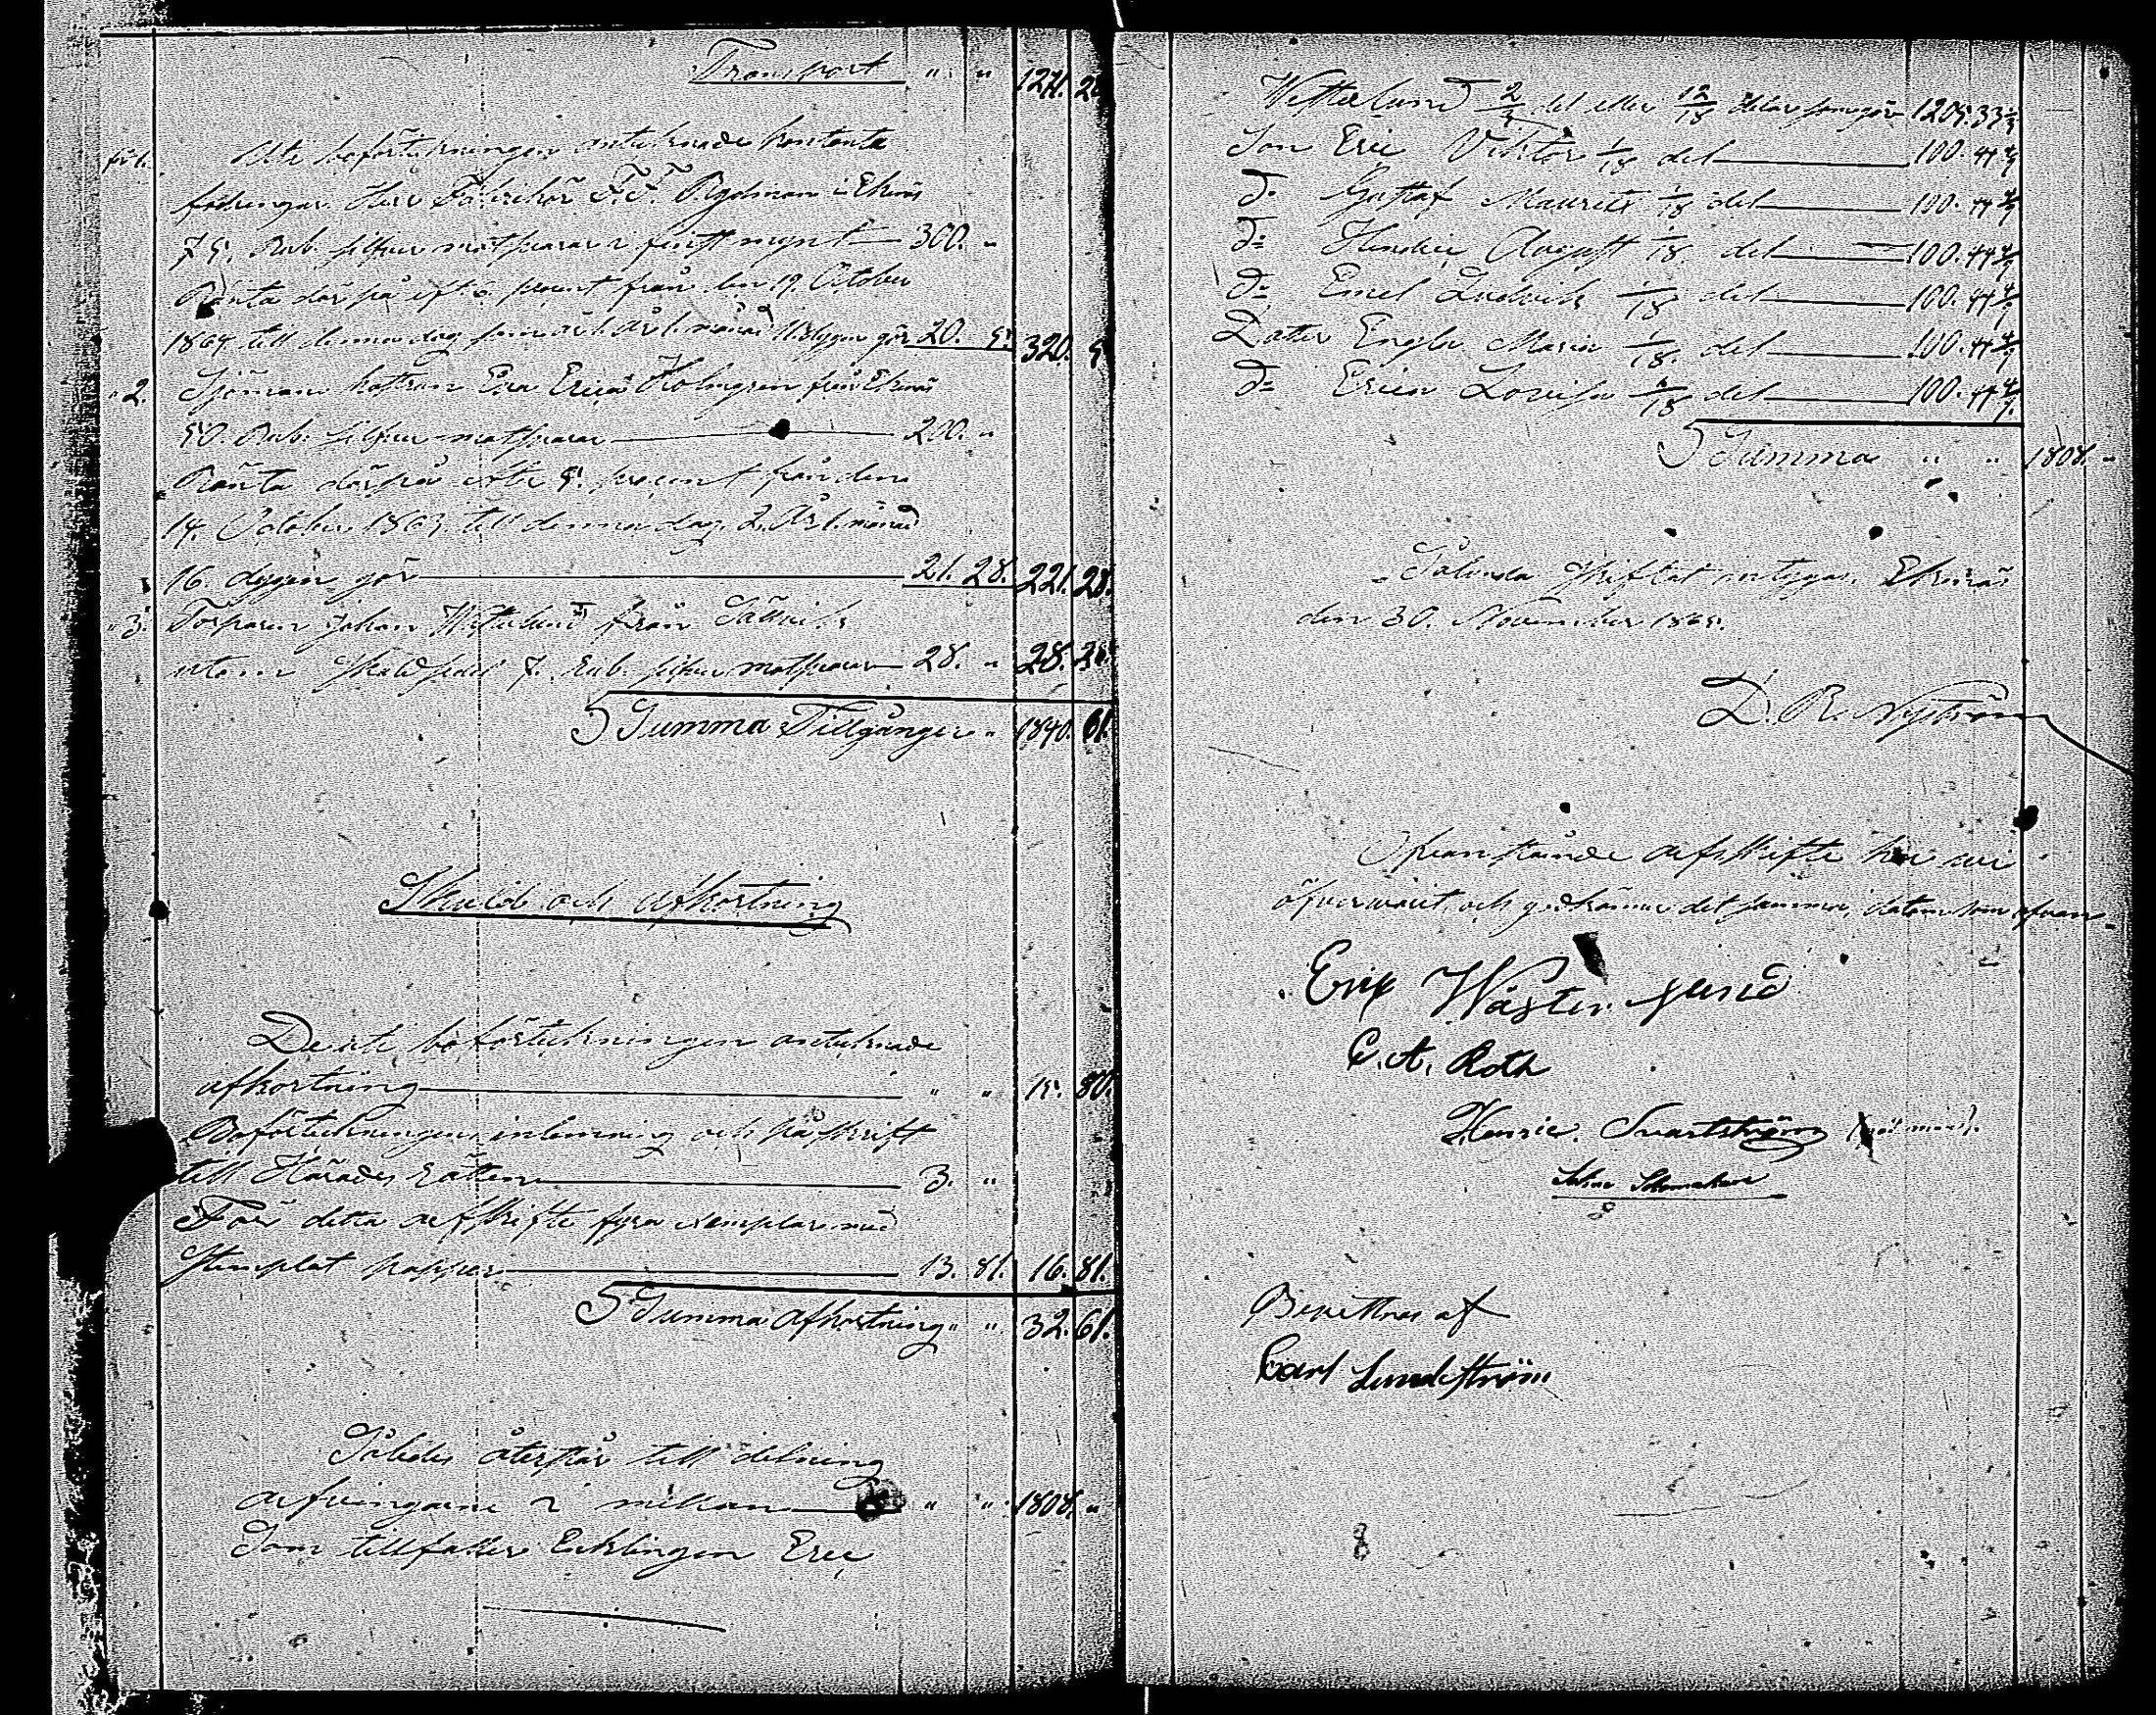 Transport " " 1271. 2
för 1. Uti boförtekningen antecknade kontanta
fodringar. Herr Fabrikör F. F. i Ekenäs
75. Rub. silfver motsvarar i finskt mynt 300. "
Ränta därpå eft. 6. procent från den 19 October
1864 till denna dag som är 1. år 1. månad 11 dygn gör 20. 5. 320. 5
" 2. Sjömans hustrun Eva Erica Holmgren från Ekenäs
50. Rub. silfver motsvarar 200. "
Ränta därpå efter 5. procent från den
14. October 1863 till denna dag 2. År 1. månad
16. dygn gör 21. 28. 221. 28.
" 3. Torparen Johan Westerlund från
utom Skuldsedel 7. Rub. silfver motsvarar 28. " 28. 28.
Summa Tillgångar " 1840. 61.
Skuld och Afkortning
De uti boförtekningen antecknade
afkortning " " 15. 80.
Boförtekningens inlemning och påskrift
till Härads Rätten 3. "
För detta arfskifte fyra exemplar med
stemplat papper 13. 81. 16. 81.
Summa Afkortning " " 32. 61.
Således återstår till delning
arfvingarne i mellan " " 1808. "
Som tillfaller Enklingen Eric
Westerlund 2/3 del eller 12/18 delar som gör 1205. 33 1/3
Son Eric Viktor 1/18 del 100. 44 4/9
d:o Gustaf Maurits 1/18 del 100. 44 4/9
d:o Hendric August 1/18. del 100. 44 4/9
d:o Emel Ludvik 1/18 del 100. 44 4/9
Dotter Engla Maria 1/18. del 100. 44 4/9
d:o Erica Lovisa 1/18 del 100. 44 4/9.
Summa " " 1808. "
Sålunda skiftat intygar. Ekenäs
den 30. November 1865.
D. R. Nyström
Ofvanstående arfskifte har wi
öfverwarit, och godkänner det samma, datum som ofvan
Erik Wäster lund
C. A. Roth
Henric. Svartström
Bevittnas af
Carl Lundström